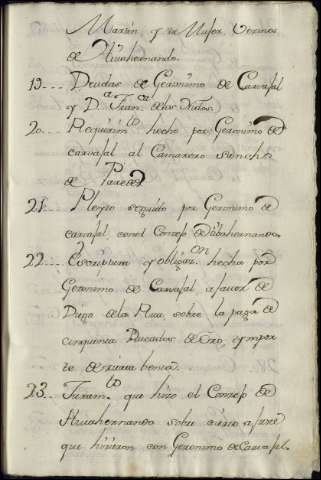 Martin y su Muger Vecinos
de Rivahernando.
19... Deudas de Geronimo de Carvajal
y D.ª Fran.ca de los Nidos.
20.. Requirim.to hecho por Geronimo de
carvajal al Camarero Sancho
de Paredes
21.. Pleyto seguido por Geronimo de
carvajal con el Consejo de Ribahernando
22.. Escriptura y obligaz.on hecha por
Geronimo de Carvajal a favor de
Diego de la Rua, sobre la paga de
cinquenta Ducados de Oro, y
de
23.. Juram.to que hizo el Consejo de
Rivahernando sobre
que hicieron con Geronimo de Carvajal.